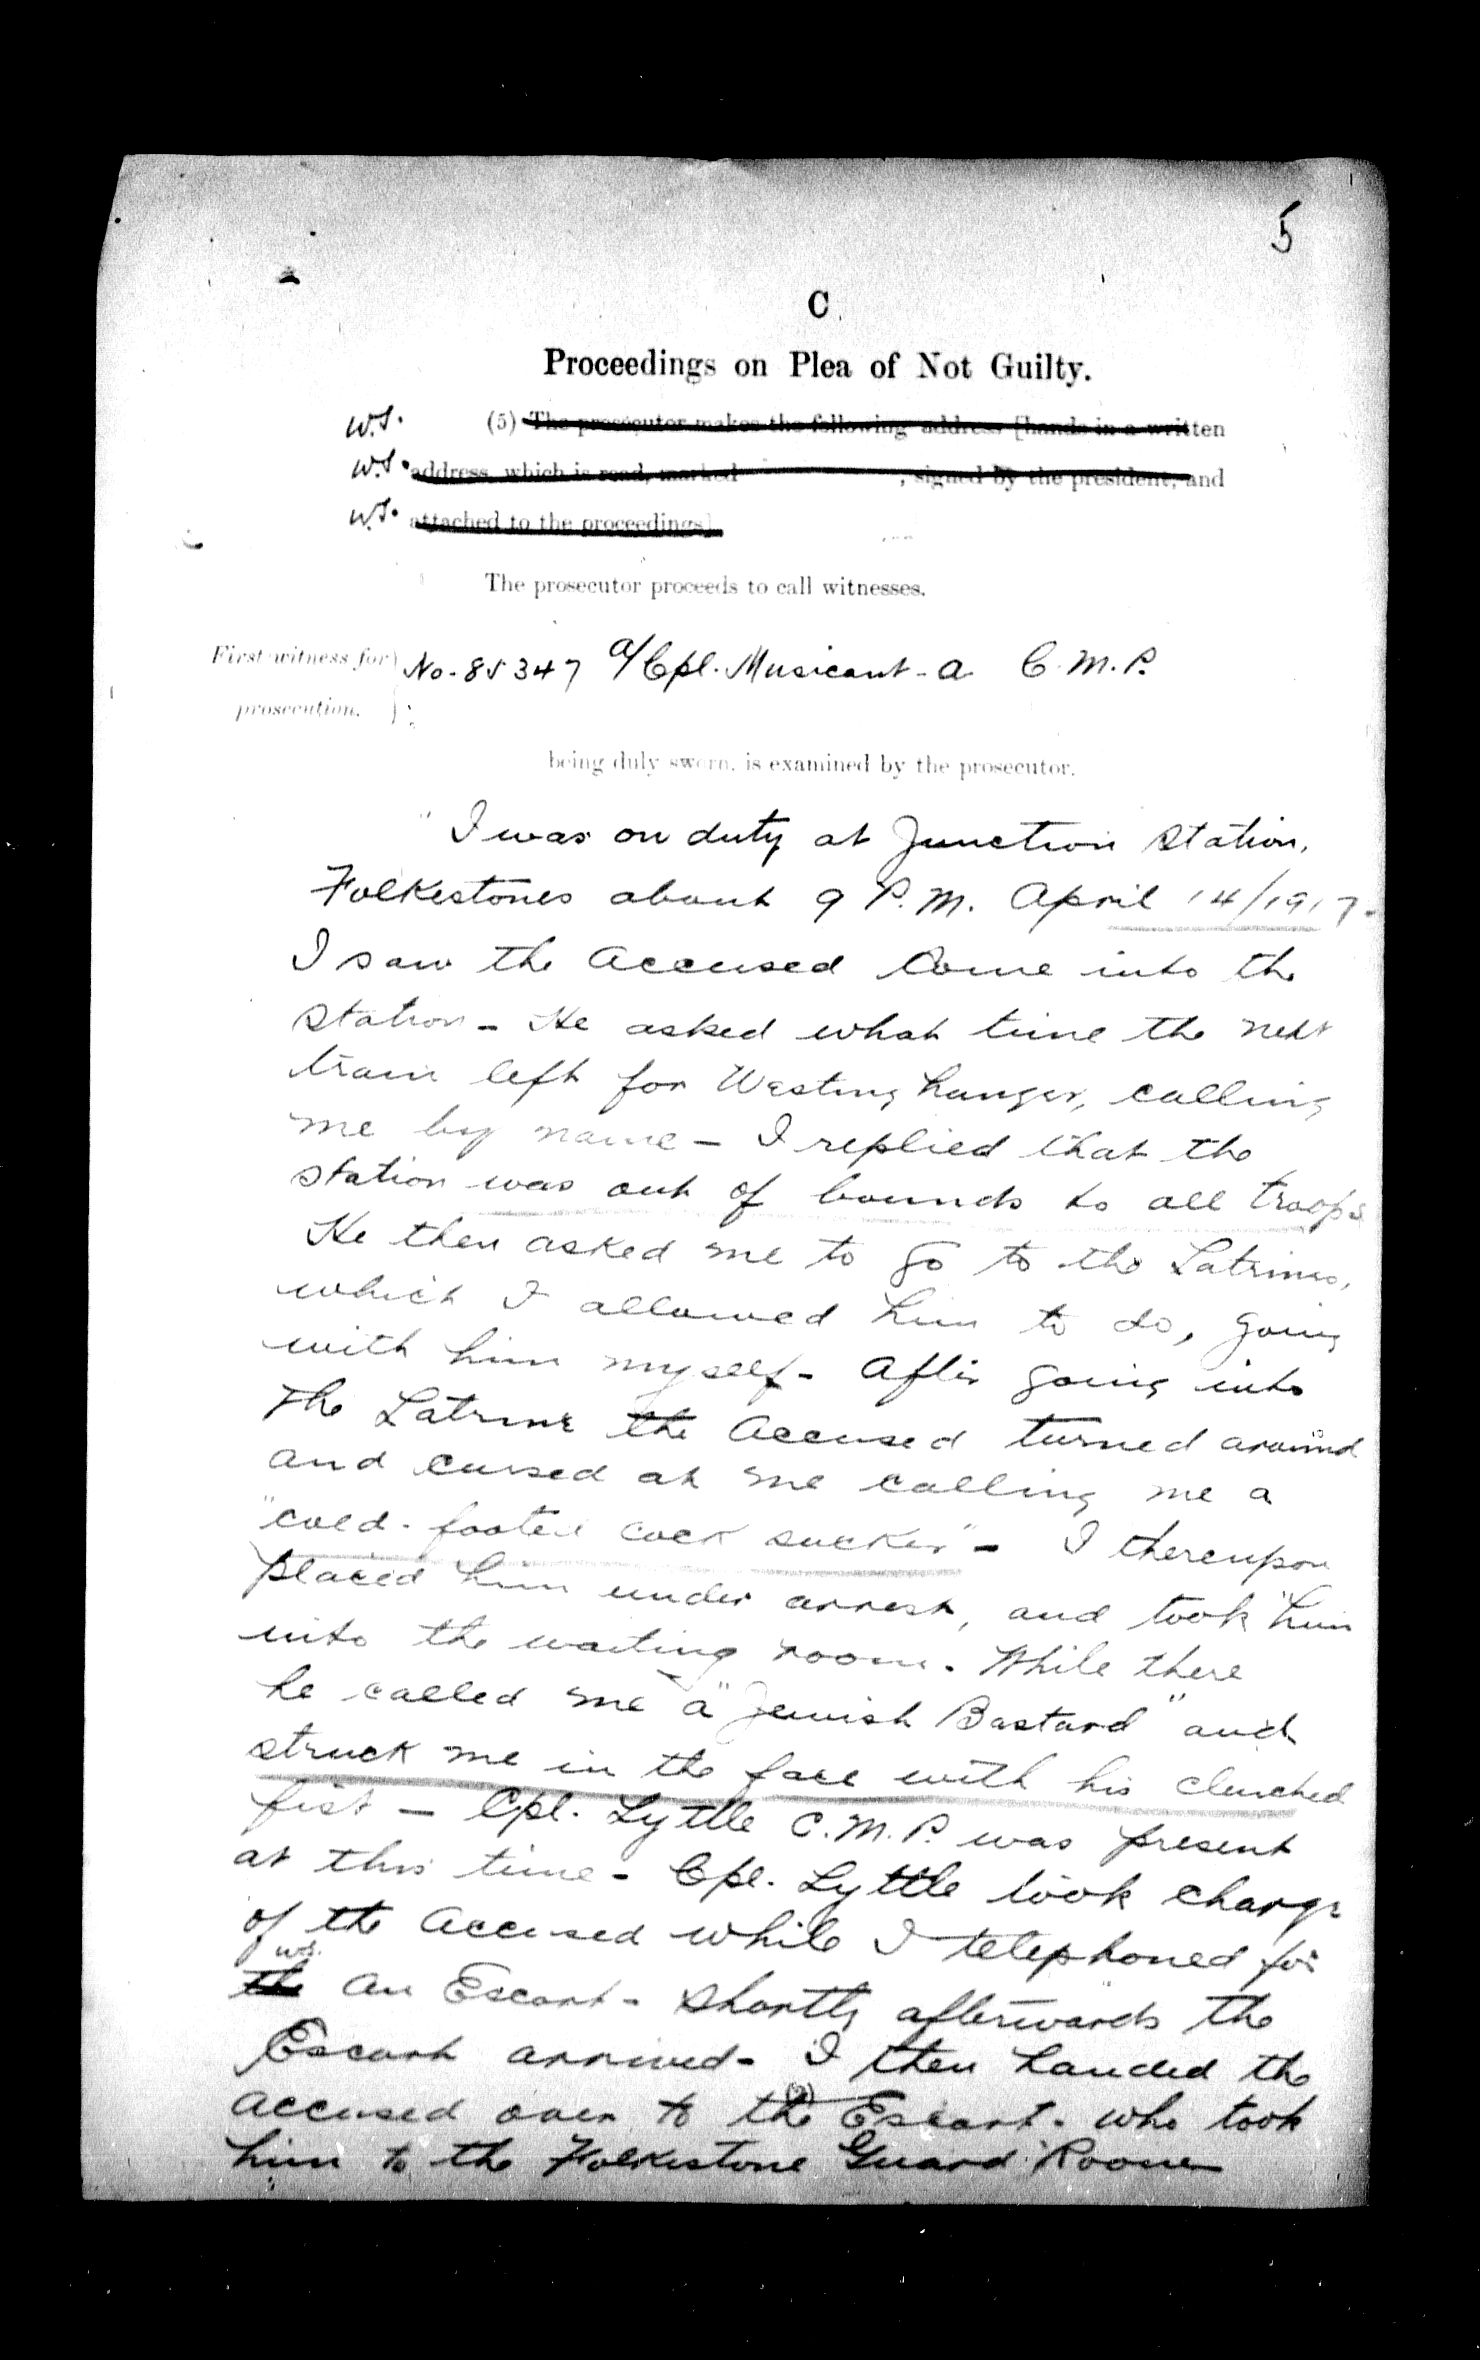 5
C
Proceedings on Plea of Not Guilty.
W.S. (5) The prosecutor makes the following address [hands in a written
W.S. address, which is read, marked , signed by the president, and
W.S. attached to the proceedings].
The prosecutor proceeds to call witnesses.
First witness for No. 85347 a/Cpl. Musicant - A C.M.P.
prosecution.
being duly sworn, is examined by the prosecutor.
"I was on duty at Junction Station,
Folkestones about 9 P.M. April 14/1917 -
I saw the Accused Come into the
Station - He asked what time the next
train left for Westing hanger, calling
me by name - I replied that the
station was out of bounds to all troops
He then asked me to go to the Latrines,
which I allowed him to do, going
with him myself - After going into
the Latrine the Accused turned around
and cursed at me calling me a
"cold - footed cock sucker" - I thereupon
placed him under arrest, and took him
into the waiting room. While there
he called me a "Jewish Bastard" and
struck me in the face with his clenched
fist - Cpl. Lyttle C.M.P. was present
at this time - Cpl. Lyttle took charge
of the Accused while I telephoned for
W.S.
the an Escort - Shortly afterwards the
Escort arrived - I then handed the
(2)
accused over to the Escort - who took
him to the Folkestone Guard Room